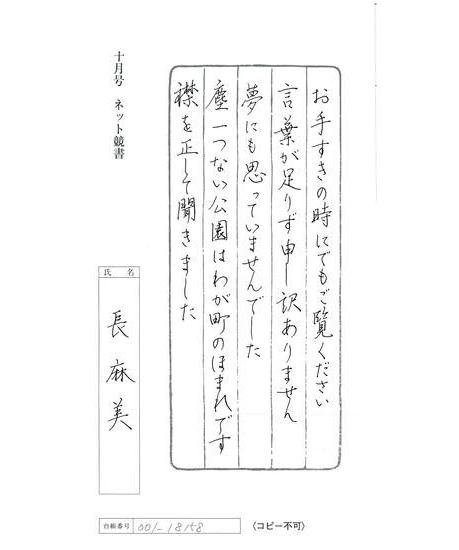 お手すきの時にでもご覧ください
言葉が足りず申し訳ありません
夢にも思っていませんでした
塵一つない公園はわが町のほまれです
襟を正して聞きました
十月号 ネット競書
氏名
長麻美
台帳番号 001-18158
〈コピー不可〉